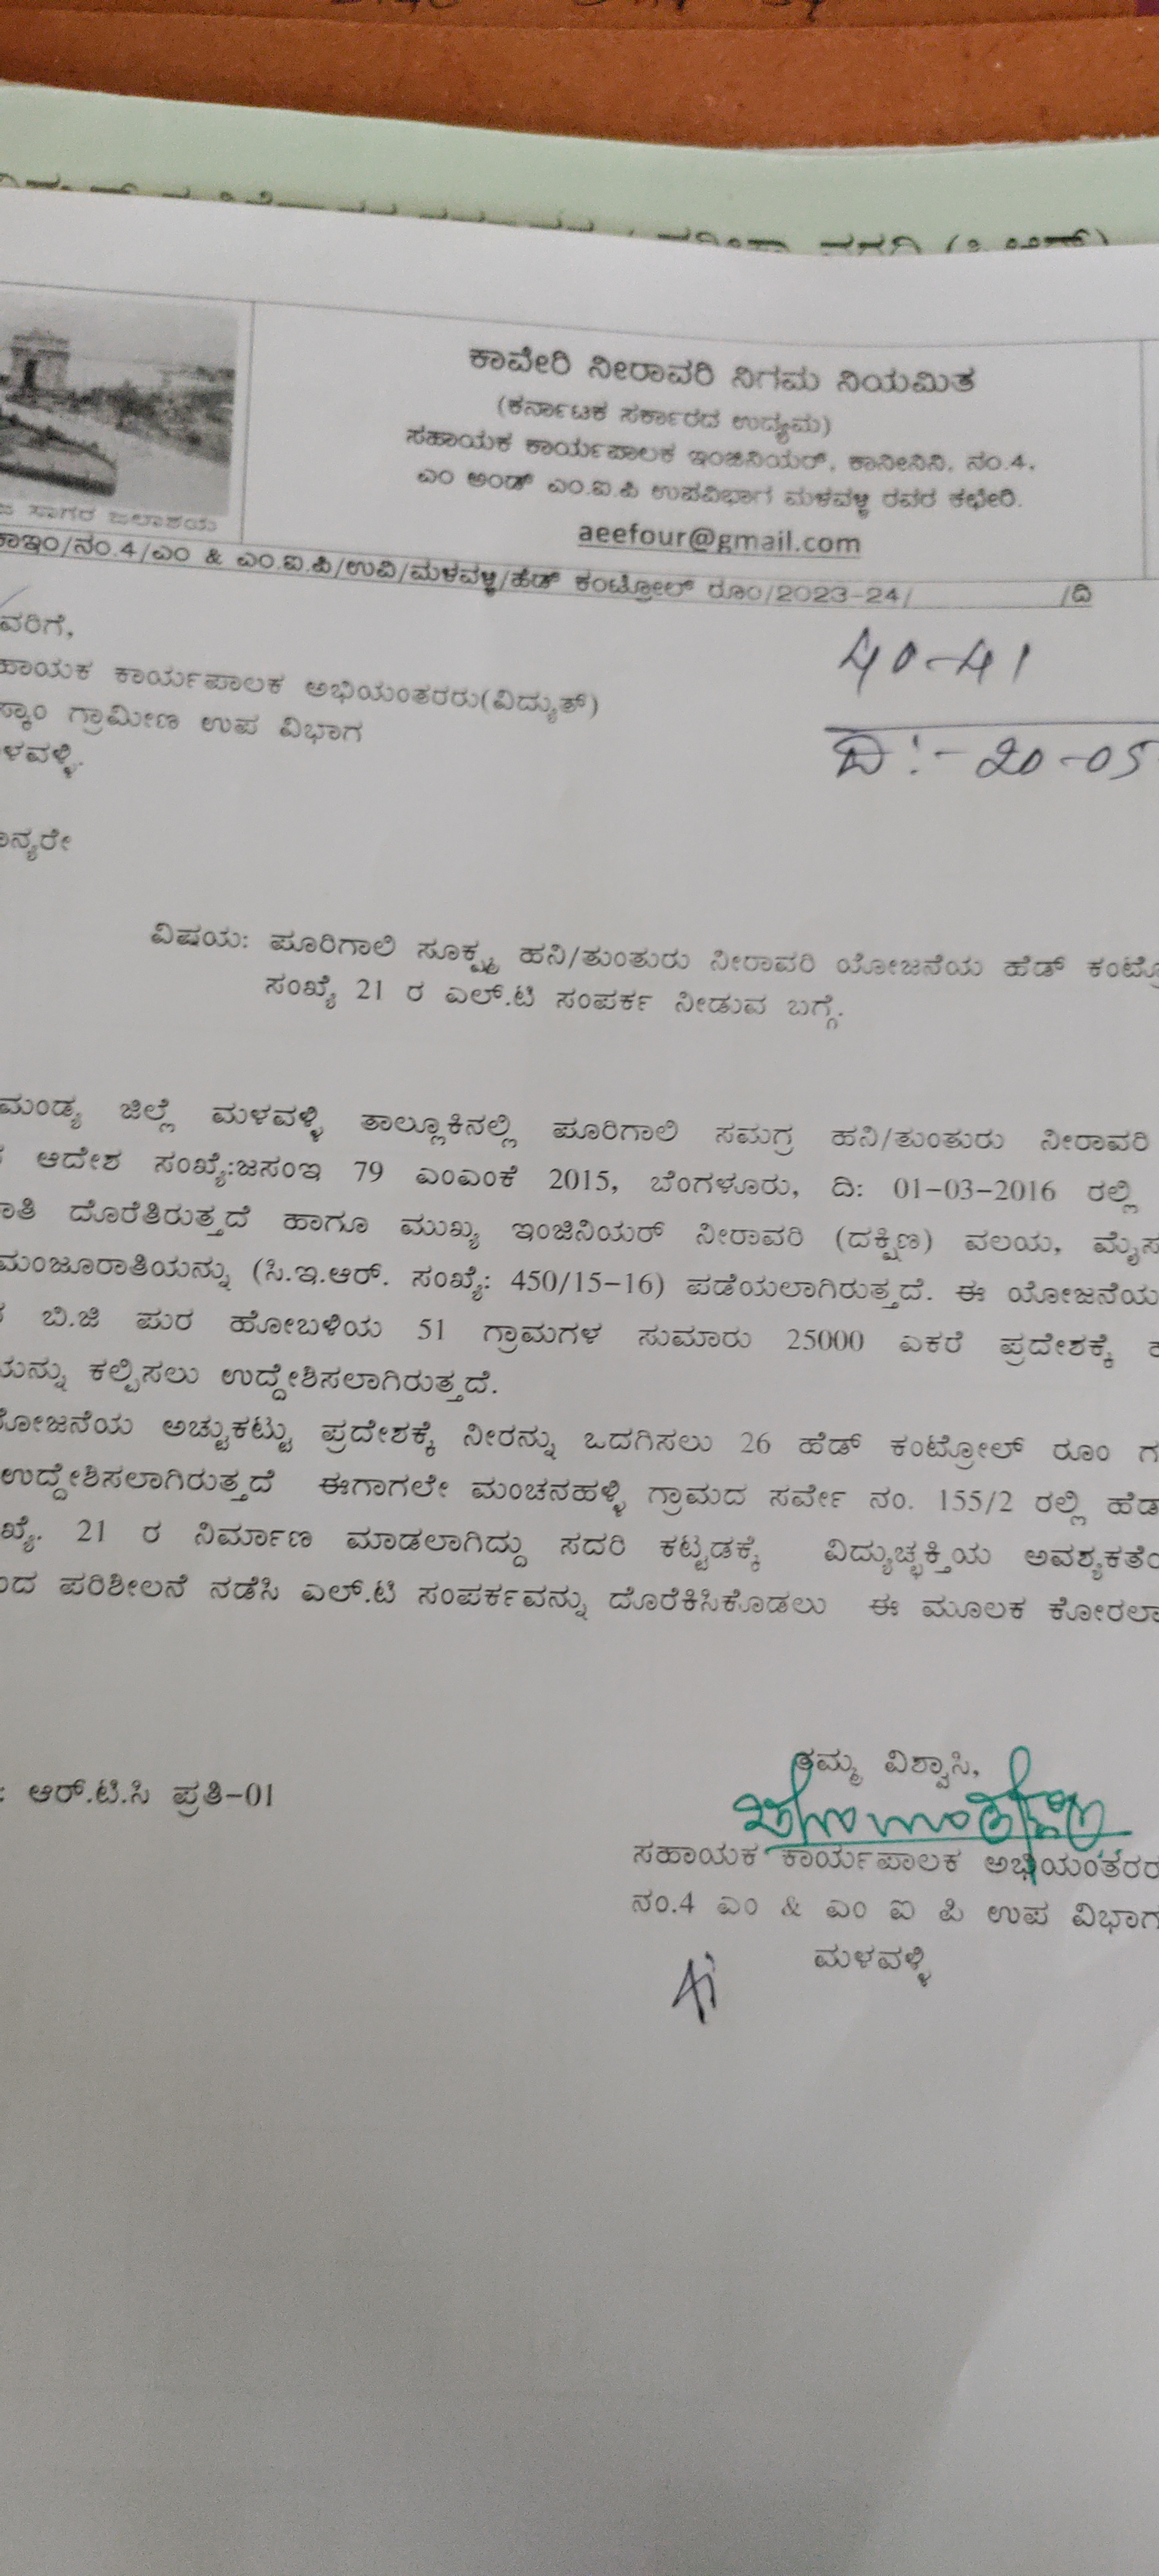 ಕಾವೇರಿ ನೀರಾವರಿ ನಿಗಮ ನಿಯಮಿತ
(ಕರ್ನಾಟಕ ಸರ್ಕಾರದ ಉದ್ಯಮ)
ಸಹಾಯಕ ಕಾರ್ಯಪಾಲಕ ಇಂಜಿನಿಯರ್, ಕಾನೀನಿನಿ, ನಂ.4,
ಎಂ ಅಂಡ್ ಎಂ.ಐ.ಪಿ ಉಪವಿಭಾಗ ಮಳವಳ್ಳಿ ರವರ ಕಛೇರಿ.
aeefour@gmail.com
ಸಾಗರ ಜಲಾಶಯ
ಕಾಇಂ/ನಂ.4/ಎಂ & ಎಂ.ಐ.ಪಿ/ಉವಿ/ಮಳವಳ್ಳಿ/ಹೆಡ್ ಕಂಟ್ರೋಲ್ ರೂಂ/2023-24/ /ದಿ
40-41
ವರಿಗೆ,
ಹಾಯಕ ಕಾರ್ಯಪಾಲಕ ಅಭಿಯಂತರರು(ವಿದ್ಯುತ್)
ಸ್ಕಾಂ ಗ್ರಾಮೀಣ ಉಪ ವಿಭಾಗ
ದಿ:-20-05
ಳವಳ್ಳಿ.
ನ್ಯರೇ
ವಿಷಯ: ಪೂರಿಗಾಲಿ ಸೂಕ್ಷ್ಮ ಹನಿ/ತುಂತುರು ನೀರಾವರಿ ಯೋಜನೆಯ ಹೆಡ್ ಕಂಟ್ರೋ
ಸಂಖ್ಯೆ 21 ರ ಎಲ್.ಟಿ ಸಂಪರ್ಕ ನೀಡುವ ಬಗ್ಗೆ.
ಮಂಡ್ಯ ಜಿಲ್ಲೆ ಮಳವಳ್ಳಿ ತಾಲ್ಲೂಕಿನಲ್ಲಿ ಪೂರಿಗಾಲಿ ಸಮಗ್ರ ಹನಿ/ತುಂತುರು ನೀರಾವರಿ
ಆದೇಶ ಸಂಖ್ಯೆ:ಜಸಂಇ 79 ಎಂಎಂಕೆ 2015, ಬೆಂಗಳೂರು, ದಿ: 01-03-2016 ರಲ್ಲಿ
ಾತಿ ದೊರೆತಿರುತ್ತದೆ ಹಾಗೂ ಮುಖ್ಯ ಇಂಜಿನಿಯರ್ ನೀರಾವರಿ (ದಕ್ಷಿಣ) ವಲಯ, ಮೈಸ
ಮಂಜೂರಾತಿಯನ್ನು (ಸಿ.ಇ.ಆರ್. ಸಂಖ್ಯೆ: 450/15-16) ಪಡೆಯಲಾಗಿರುತ್ತದೆ. ಈ ಯೋಜನೆಯ
ಬಿ.ಜಿ ಪುರ ಹೋಬಳಿಯ 51 ಗ್ರಾಮಗಳ ಸುಮಾರು 25000 ಎಕರೆ ಪ್ರದೇಶಕ್ಕೆ
ಯನ್ನು ಕಲ್ಪಿಸಲು ಉದ್ದೇಶಿಸಲಾಗಿರುತ್ತದೆ.
ೋಜನೆಯ ಅಚ್ಚುಕಟ್ಟು ಪ್ರದೇಶಕ್ಕೆ ನೀರನ್ನು ಒದಗಿಸಲು 26 ಹೆಡ್ ಕಂಟ್ರೋಲ್ ರೂಂ ಗ
ಉದ್ದೇಶಿಸಲಾಗಿರುತ್ತದೆ ಈಗಾಗಲೇ ಮಂಚನಹಳ್ಳಿ ಗ್ರಾಮದ ಸರ್ವೇ ನಂ. 155/2 ರಲ್ಲಿ ಹೆಡ
ಖ್ಯೆ. 21 ರ ನಿರ್ಮಾಣ ಮಾಡಲಾಗಿದ್ದು ಸದರಿ ಕಟ್ಟಡಕ್ಕೆ ವಿದ್ಯುಚ್ಛಕ್ತಿಯ ಅವಶ್ಯಕತೆ
ಂದ ಪರಿಶೀಲನೆ ನಡೆಸಿ ಎಲ್.ಟಿ ಸಂಪರ್ಕವನ್ನು ದೊರೆಕಿಸಿಕೊಡಲು ಈ ಮೂಲಕ ಕೋರಲಾ
ತಮ್ಮ ವಿಶ್ವಾಸಿ,
: ಆರ್.ಟಿ.ಸಿ ಪ್ರತಿ-01
ಸಹಾಯಕ ಕಾರ್ಯಪಾಲಕ ಅಭಿಯಂತರರ
ನಂ.4 ಎಂ & ಎಂ ಐ ಪಿ ಉಪ ವಿಭಾಗ
ಮಳವಳ್ಳಿ